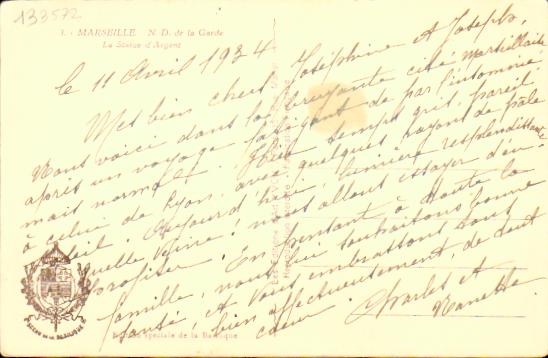 133572
1. - MARSEILLE N. D. de la Garde
La Statue d'Argent
le 11 Avril 1934
Mes bien chers Joséphine et Joseph,
Nous voici dans la bruyante cité Marseillaise
après un voyage fatigant de par l'insomnie
mais normal. Hier temps gris pareil
à celui de Lyon, avec quelques rayons de pâle
soleil. Aujourd'hui, lumière resplendissante
quelle veine! nous allons essayer d'en
profiter. En pensant à toute la
famille, nous lui souhaitons bonne
santé, et vous embrassons tous
bien affectueusement, de tout
coeur.
Charles et
Nanette
Edition spéciale de la Basilique